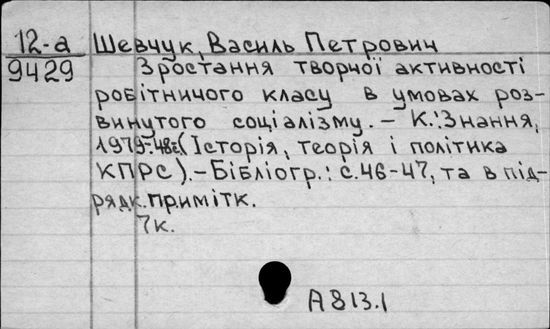 12-а Шевчук, Василь Петрович
9429 Зростання творчої активності
робітничого класу в умовах роз-
винутого соціалізму. – К.: Знання,
1979.-48с. (Історія, теорія і політика
КПРС). – Бібліогр.: с.46-47, та в під-
рядк. примітк.
7к.
А813.1